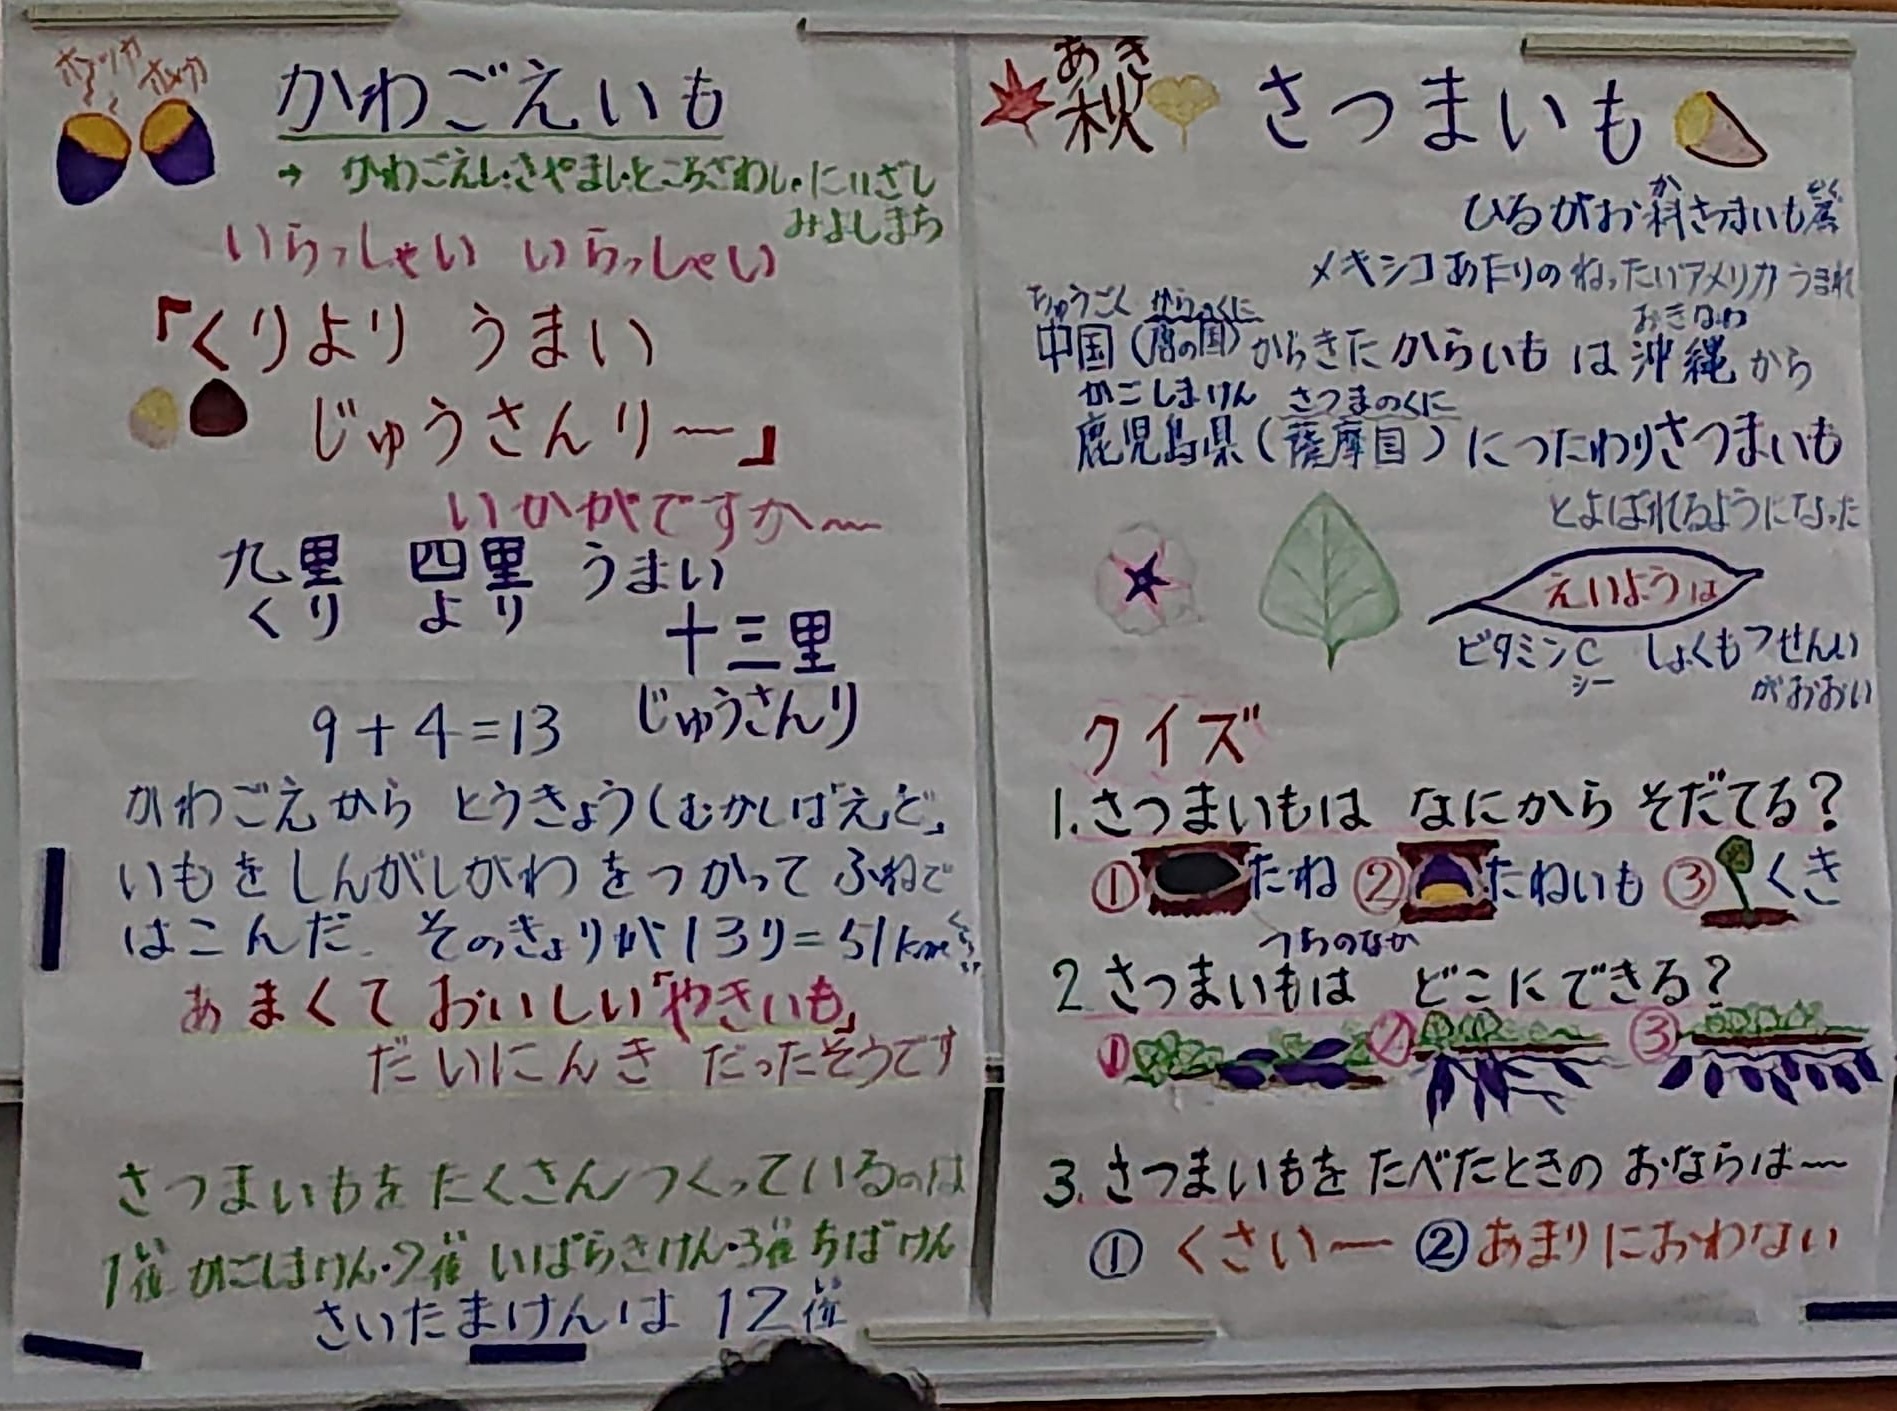 ホッカ ホカ
かわごえいも
→ かわごえし・さやまし・ところざわし・にいざし
みよしまち
いらっしゃい いらっしゃい
「くりより うまい
じゅうさんりー」
いかがですか〜
九里 四里 うまい
くり より
十三里
じゅうさんり
9+4=13
かわごえから とうきょう(むかしは「えど」
いもをしんがしがわをつかって ふねで
はこんだ。そのきょりが13り=51km
あまくて おいしい「やきいも」
だいにんき だったそうです
さつまいもを たくさんつくっているのは
い
1位 かごしまけん・2位 いばらきけん・3位 ちばけん
さいたまけんは 12位
あき
秋 さつまいも
か ぞく
ひるがお科さつまいも属
メキシコあたりの ねったいアメリカ うまれ
ちゅうごく からのくに おきなわ
中国(唐の国)からきた からいも は 沖縄から
かごしまけん さつまのくに
鹿児島県(薩摩国)につたわりさつまいも
とよばれるようになった
えいようは
ビタミンC しょくもつせんい
シー がおおい
クイズ
1. さつまいもは なにから そだてる?
① たね ② たねいも ③ くき
つちのなか
2 さつまいもは どこにできる?
① ② ③
3. さつまいもを たべたときの おならは〜
① くさいー ② あまりにおわない